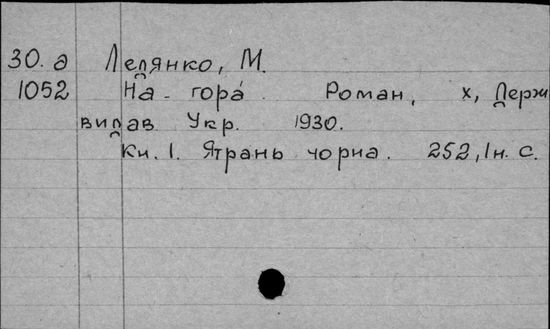 30. д Ледянко, М.
1052 На - гора́. Роман, х, Держ
видав. Укр. 1930.
Кн. 1. Ятрань чорна. 252, 1 н. с.